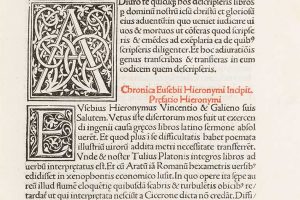 ADiuro te quicūq; hos descripseris libros
p dominū nostrū iesū christū et gloriosū
eius aduentū in quo ueniet iudicare ui
uos & mortuos ut cōferas quod scripse
ris & emēdes ad exēplaria ea de quibꝰ
scripseris diligenter. Et hoc adiuratiōis
genus transcribas & transferas in eum
codicem quem descripseris.
Chronica Eusebii Hieronymi Incipit.
Prefatio Hieronymi
EUsebius Hieronymus Vincentio & Galieno suis
Salutem. Vetus iste disertorum mos fuit ut exercen
di ingenii causa grecos libros latino sermone absol
uerent. Et quod plus ī se difficultatis habet poemata
illustriū uirorū addita metri necessitate trāsferrēt.
Vnde & noster Tulius Platonis integros libros ad
uerbū interpretatus est. Et cū Aratū iā Romanū hexametris uersibꝰ
edidisset in xenophontis economico lusit. In quo opere ita sepe au
reū illud flumē eloquētię quibusdā scabris & turbulētis obicibꝰ re
tardat ut qui interpretata nesciūt a Cicerone dicta nō credāt.